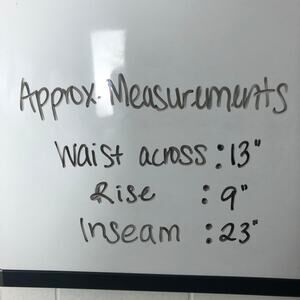 Approx. Measurements
Waist across: 13"
Rise : 9"
Inseam : 23"